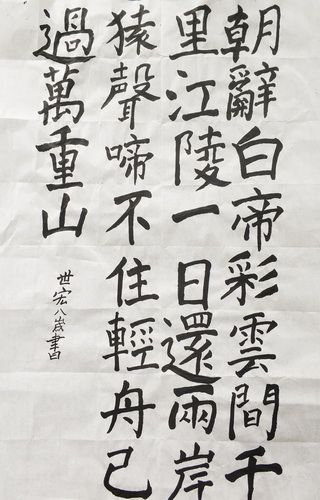 朝辭白帝彩雲間千
里江陵一日還兩岸
猿聲啼不住輕舟已
過萬重山
世宏八歲書